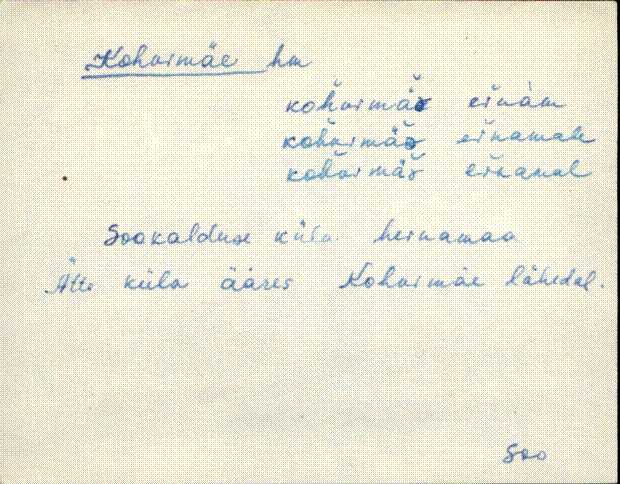 Kohvimäe hm
kohvimä͕ě eĭnàm
kohvimäě eĭnamale
kohvimäě eĭnamal
Sookalduse küla heinamaa
Ätte küla ääres Kohvimäe lähedal.
Soo